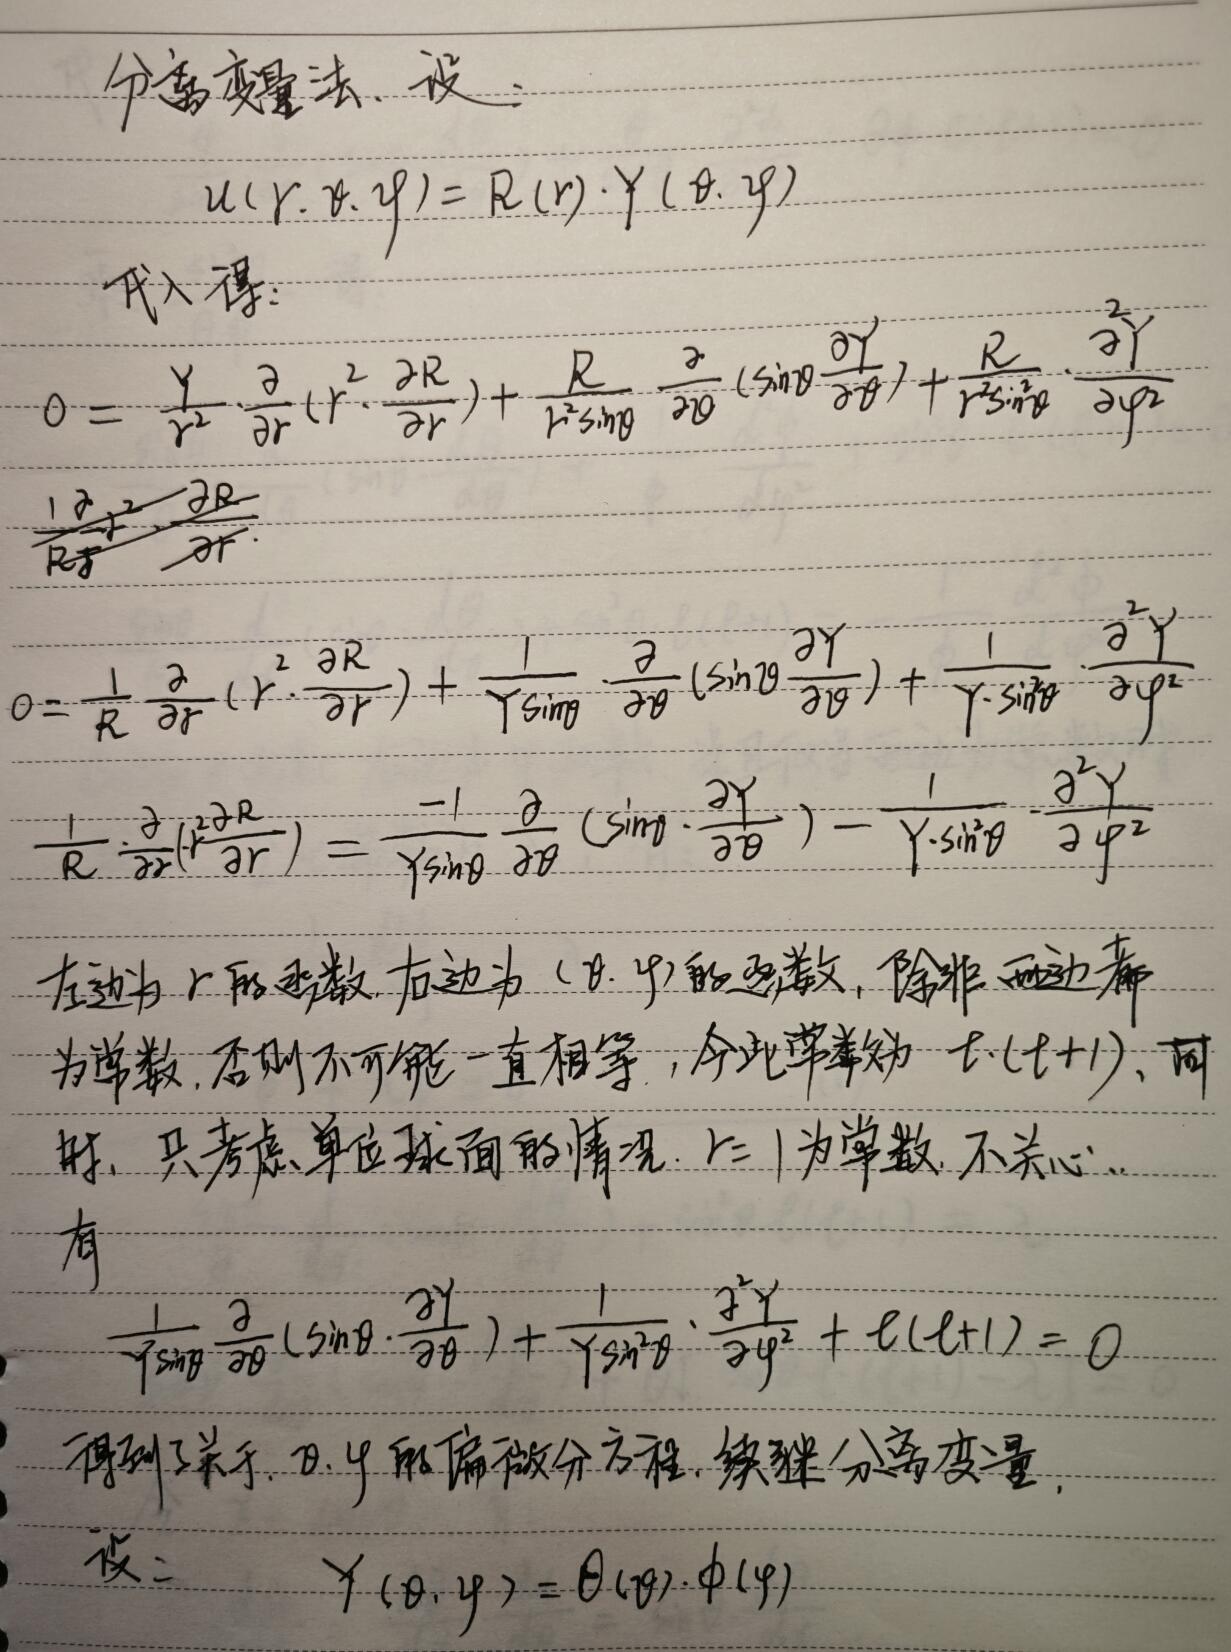 分离变量法、设:
u(r.θ.φ)=R(r)·Y(θ.φ)
代入得:
0 = Y/r² · ∂/∂r (r² · ∂R/∂r) + R/(r²sinθ) · ∂/∂θ (sinθ ∂Y/∂θ) + R/(r²sin²θ) · ∂²Y/∂φ²
0 = 1/R ∂/∂r (r² · ∂R/∂r) + 1/(Y sinθ) · ∂/∂θ (sinθ ∂Y/∂θ) + 1/(Y·sin²θ) · ∂²Y/∂φ²
1/R · ∂/∂r (r² ∂R/∂r) = -1/(Y sinθ) ∂/∂θ (sinθ · ∂Y/∂θ) - 1/(Y·sin²θ) · ∂²Y/∂φ²
左边为 r 的函数,右边为 (θ.φ) 的函数, 除非两边都
为常数,否则不可能一直相等,令此常数为 l·(l+1)、同
时、只考虑单位球面的情况. r=1为常数,不关心..
有
1/(Y sinθ) ∂/∂θ (sinθ · ∂Y/∂θ) + 1/(Y sin²θ) · ∂²Y/∂φ² + l(l+1) = 0
得到了关于. θ.φ 的偏微分方程. 续继分离变量,
设: Y(θ.φ) = Θ(θ)·Φ(φ)